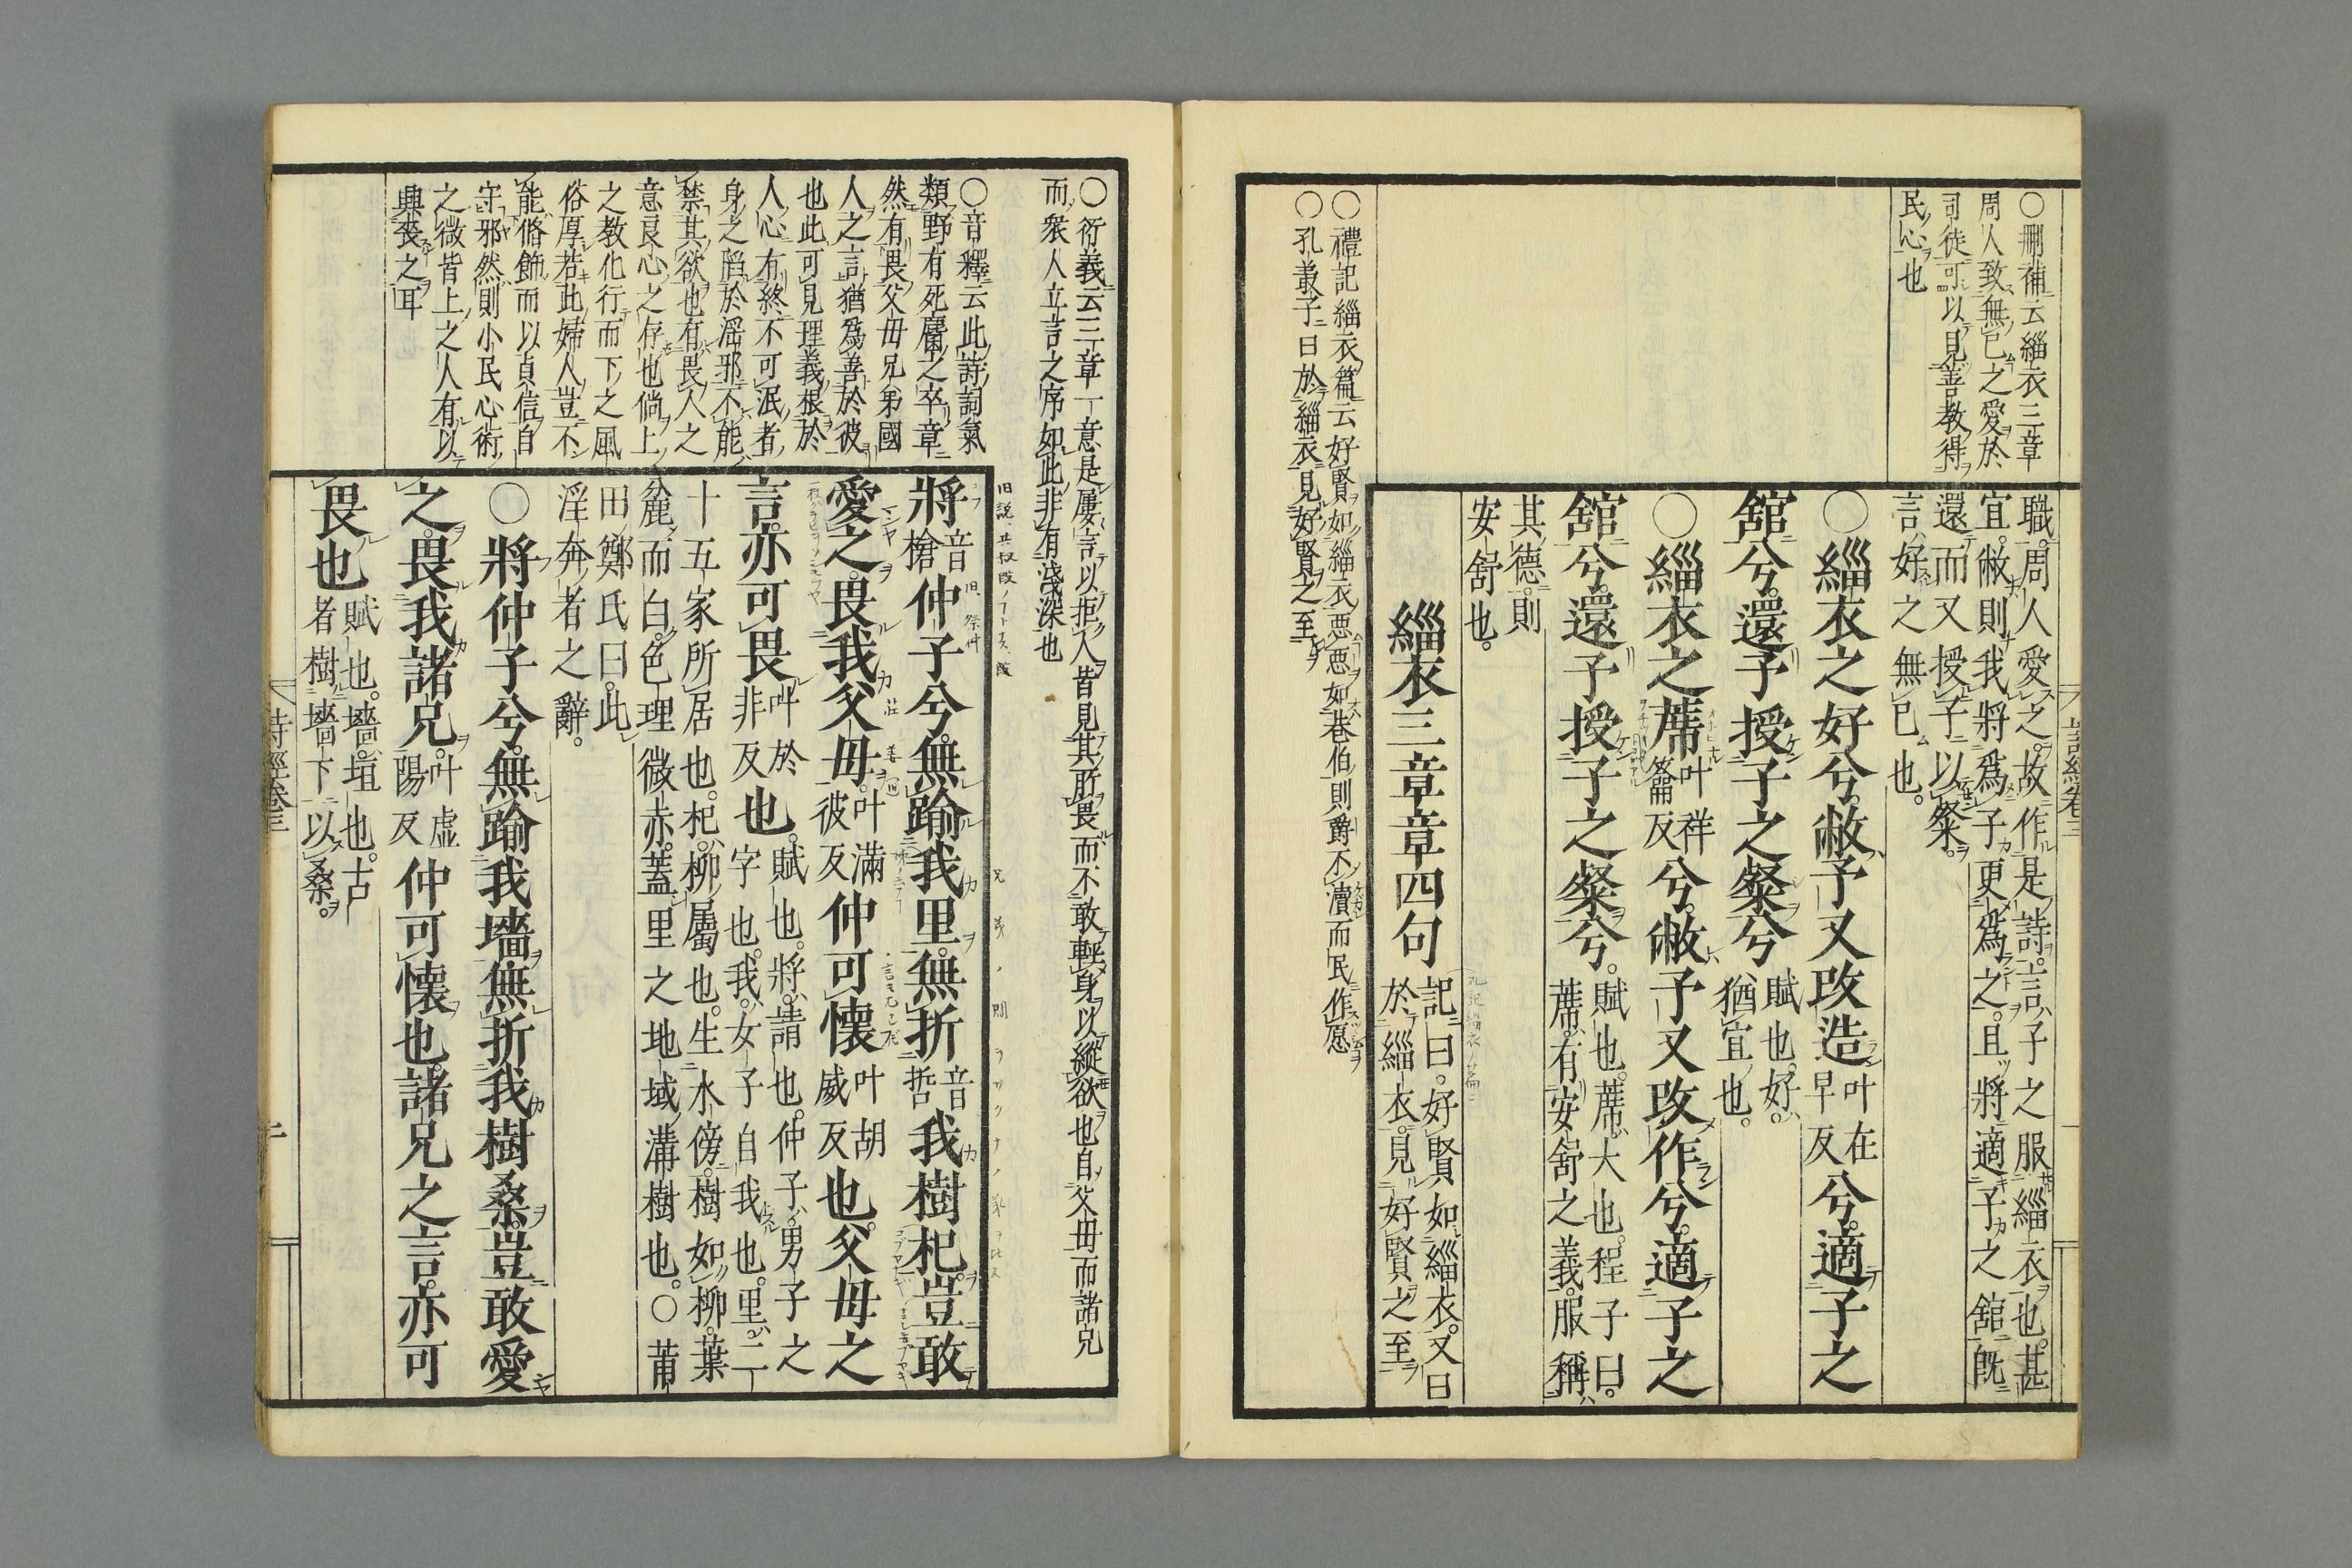 ○刪補云緇衣三章
周人致無已之愛於
司徒可以見善教得
民心也
職。周人愛之。故作是詩。言子之服緇衣也。甚
宜。敝則我將爲子更爲之。且將適子之舘。旣
還而又授子以粲。
言好之無已也。
○緇衣之好兮。敝予又改造叶在早反兮。適子之
舘兮。還予授子之粲兮賦也。好。猶宜也。
○緇衣之蓆叶祥籥反兮。敝予又改作兮。適子之
舘兮。還予授子之粲兮。賦也。蓆。大也。程子曰。蓆有安舒之義。服稱
其德。則
安舒也。
緇衣三章章四句記曰。好賢如緇衣。又曰於緇衣。見好賢之至
○禮記緇衣篇云好賢如緇衣惡惡如巷伯則爵不瀆而民作愿
○孔叢子曰於緇衣見好賢之至
○衍義云三章一意是屢言以拒人皆見其所畏而不敢輕身以縱欲也自父母而諸兄
而衆人立言之序如此非有淺深也
○音釋云此詩詞氣
類野有死麕之卒章
然有畏父母兄弟國
人之言猶爲善於彼
也此可見理義根於
人心有終不可泯者
身之陷於淫邪不能
禁其欲也有畏人之
意良心之存也倘上
之教化行而下之風
俗厚若此婦人豈不
能脩飾而以貞信自
守邪然則小民心術
之微皆上之人有以
興喪之耳
將音槍仲子兮。無踰我里。無折音哲我樹杞。豈敢
愛之。畏我父母。叶滿彼反仲可懷叶胡威反也。父母之
言。亦可畏叶於非反也。賦也。將。請也。仲子。男子之字也。我。女子自我也。里。二
十五家所居也。杞。柳屬也。生水傍。樹如柳。葉
麄而白。色理微赤。蓋里之地域溝樹也。○莆
田鄭氏曰。此
淫奔者之辭。
○將仲子兮。無踰我墻。無折我樹桑。豈敢愛
之。畏我諸兄。叶虛陽反仲可懷也。諸兄之言。亦可
畏也賦也。墻。垣也。古者樹墻下以桑。
詩經卷三